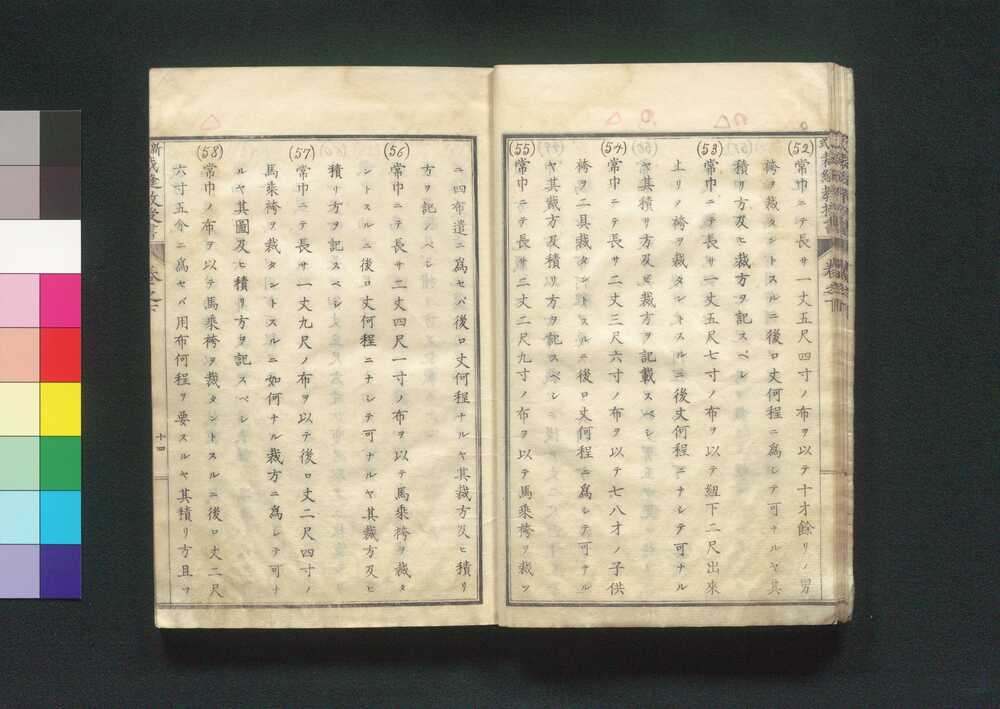 (52)
常巾ニテ長サ一丈五尺四寸ノ布ヲ以テ十才餘リノ男
袴ヲ裁タントスルニ後ロ丈何程ニ爲シテ可ナルヤ其
積リ方及ヒ裁方ヲ記スベシ
(53)
常巾ニテ長サ一丈五尺七寸ノ布ヲ以テ紐下二尺出來
上リノ袴ヲ裁タントスルニ後丈何程ニナシテ可ナル
ヤ其積リ方及ヒ裁方ヲ記載スベシ
(54)
常巾ニテ長サ二丈三尺六寸ノ布ヲ以テ七八才ノ子供
袴ヲ二具裁タントスルニ後ロ丈何程ニ爲シテ可ナル
ヤ其裁方及積リ方ヲ記スベシ
(55)
常巾ニテ長サ二丈二尺九寸ノ布ヲ以テ馬乘袴ヲ裁ツ
ニ四布遣ニ爲セバ後ロ丈何程ナルヤ其裁方及ヒ積リ
方ヲ記スベシ
(56)
常巾ニテ長サ二丈四尺一寸ノ布ヲ以テ馬乘袴ヲ裁タ
ントスルニ後ロ丈何程ニナシテ可ナルヤ其裁方及ヒ
積リ方ヲ記スベシ
(57)
常巾ニテ長サ一丈九尺ノ布ヲ以テ後ロ丈二尺四寸ノ
馬乘袴ヲ裁タントスルニ如何ナル裁方ニ爲シテ可ナ
ルヤ其圖及ヒ積リ方ヲ記スベシ
(58)
常巾ノ布ヲ以テ馬乘袴ヲ裁タントスルニ後ロ丈二尺
六寸五分ニ爲セバ用布何程ヲ要スルヤ其積リ方且ツ
十四